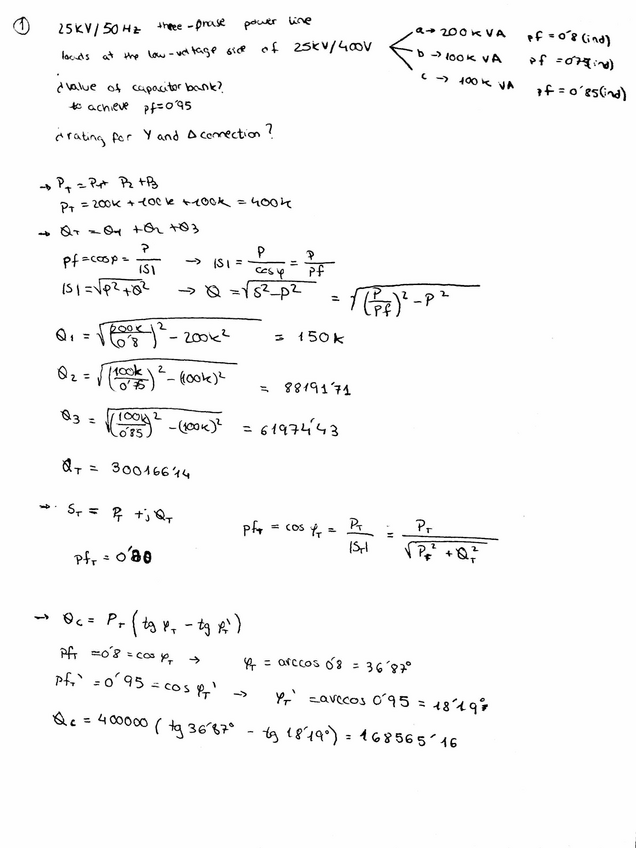 ① 25KV/50Hz three-phase power line
loads at the low-voltage side of 25KV/400V
a → 200 k VA pf = 0'8 (ind)
b → 100 K VA pf = 0'75 (ind)
c → 100 K VA pf = 0'85 (ind)
¿value of capacitor bank?
to achieve pf=0'95
¿rating for Y and Δ connection?
→ P_T = P1 + P2 + P3
P_T = 200k + 100k + 100k = 400k
→ Q_T = Q1 + Q2 + Q3
pf = cos φ = P/|S| → |S| = P/cos φ = P/pf
|S| = √(P² + Q²) → Q = √(S² - P²) = √((P/Pf)² - P²)
Q1 = √((200k/0'8)² - 200k²) = 150k
Q2 = √((100k/0'75)² - (100k)²) = 88191'71
Q3 = √((100k/0'85)² - (100k)²) = 61974'43
Q_T = 300166'14
→ S_T = P_T + j Q_T
pf_T = cos φ_T = P_T/|S_T| = P_T/√(P_T² + Q_T²)
pf_T = 0'80
→ Q_C = P_T (tg φ_T - tg φ_T')
pf_T = 0'8 = cos φ_T → φ_T = arccos 0'8 = 36'87°
pf_T' = 0'95 = cos φ_T' → φ_T' = arccos 0'95 = 18'19°
Q_C = 400000 (tg 36'87° - tg 18'19°) = 168565'16